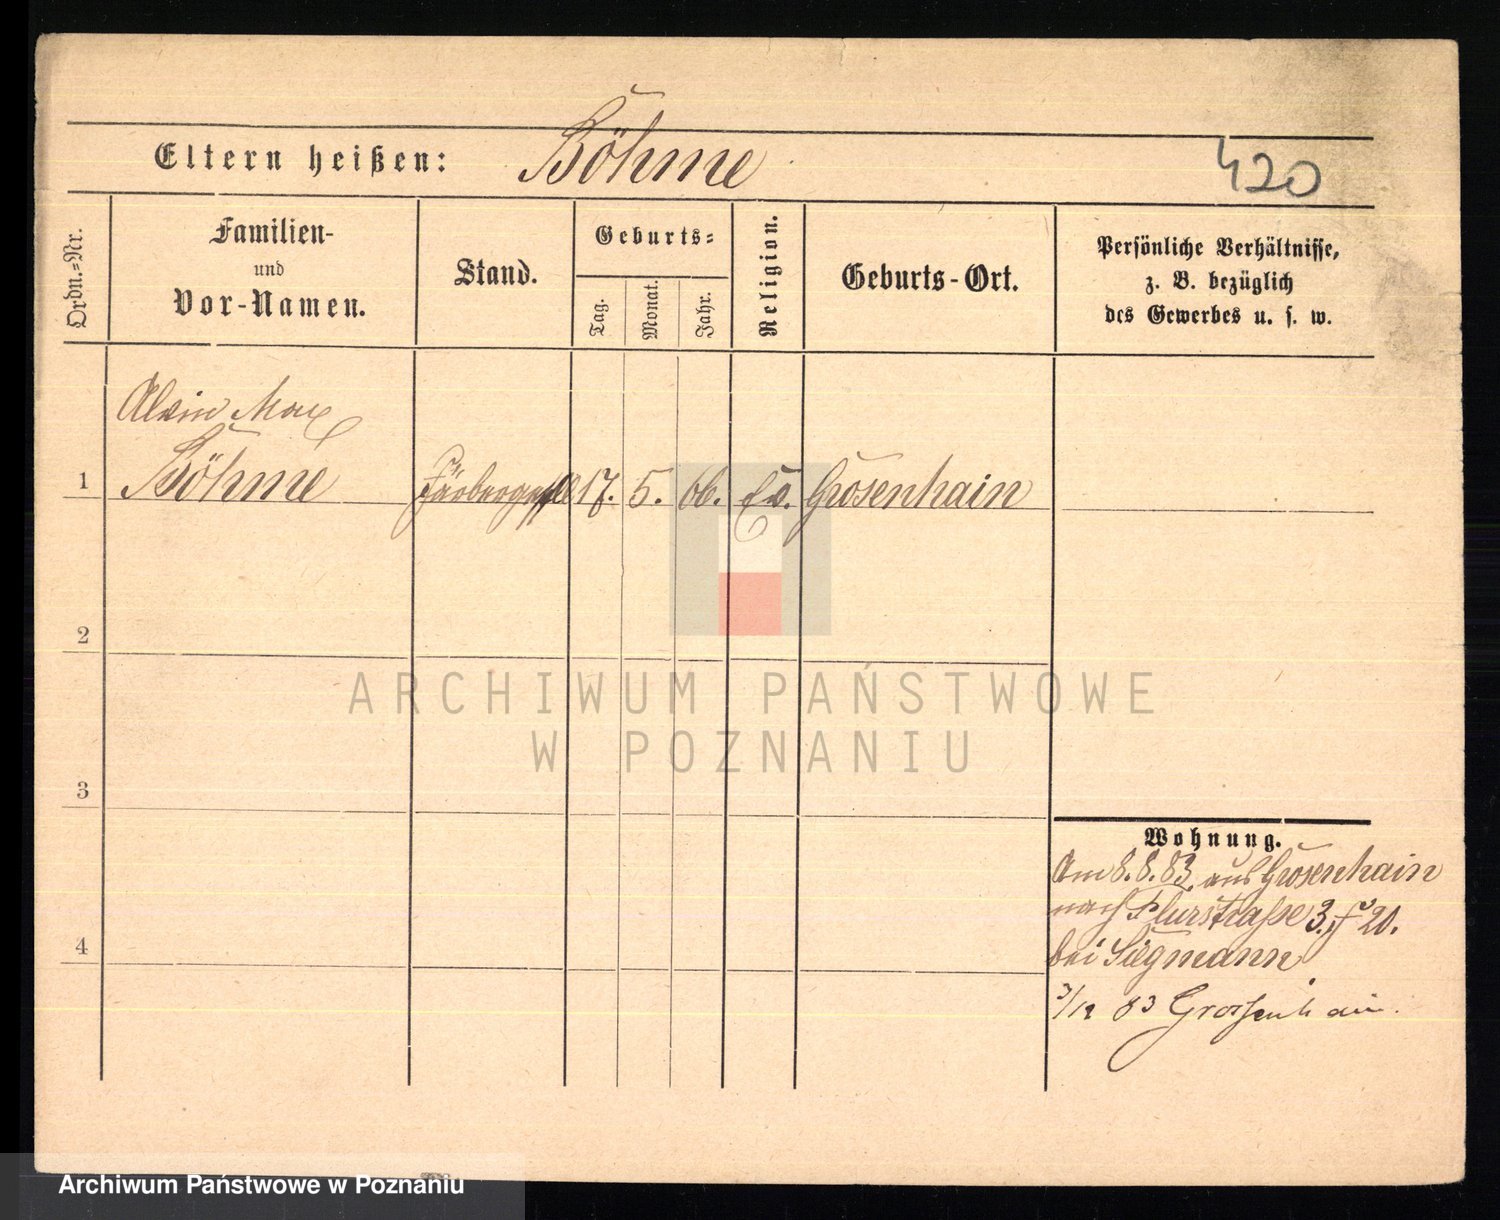 Eltern heißen: Böhme
420
Ordn.=Nr.
Familien-
und
Vor-Namen.
Stand.
Geburts=
Tag.
Monat.
Jahr.
Religion.
Geburts-Ort.
Persönliche Verhältnisse,
z. B. bezüglich
des Gewerbes u. s. w.
Alwin Max
1 Böhme 17. 5. 66. Ev. Grosenhain
2
3
4
Wohnung.
Am 8.8.83 aus Grosenhain
nach Flurstraße 3. 20.
bei Siegmann
3/12 83 Grossenhain.
ARCHIWUM PAŃSTWOWE
W POZNANIU
Archiwum Państwowe w Poznaniu